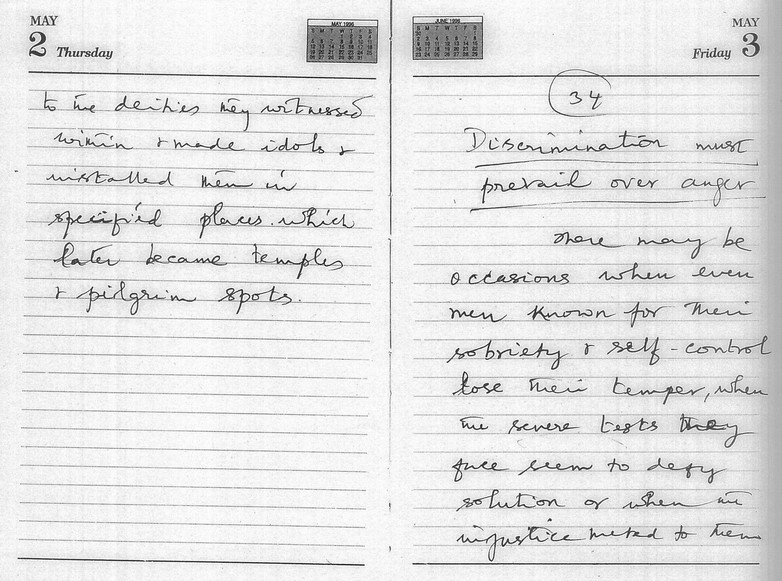 MAY
2 Thursday
MAY 1996
to the deities they witnessed
within & made idols &
installed them in
specified places. which
later became temples
& pilgrim spots.
JUNE 1996
MAY
Friday 3
34
Discrimination must
prevail over anger
There may be
occasions when even
men known for their
sobriety & self-control
lose their temper, when
the severe tests they
face seem to defy
solution or when the
injustice meted to them